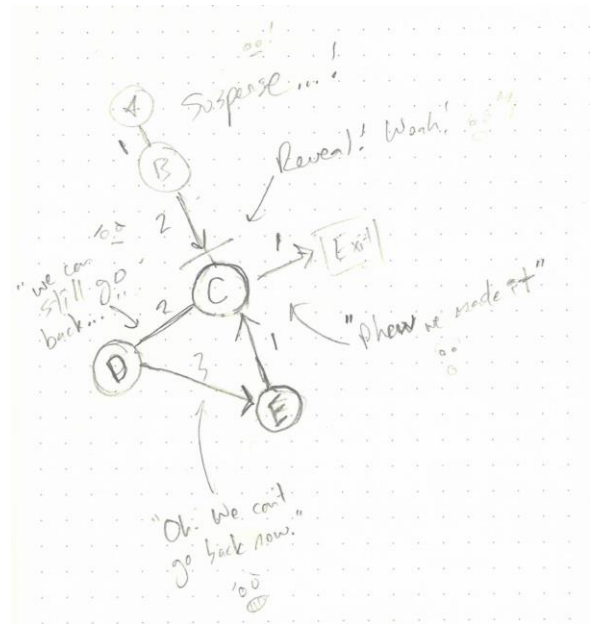 Suspense...!
A
1
B
Reveal! Woah!
2
1
Exit
C
"we can
still go
back......
2
"Phew we made it"
D
3
1
E
"Oh. We can't
go back now."